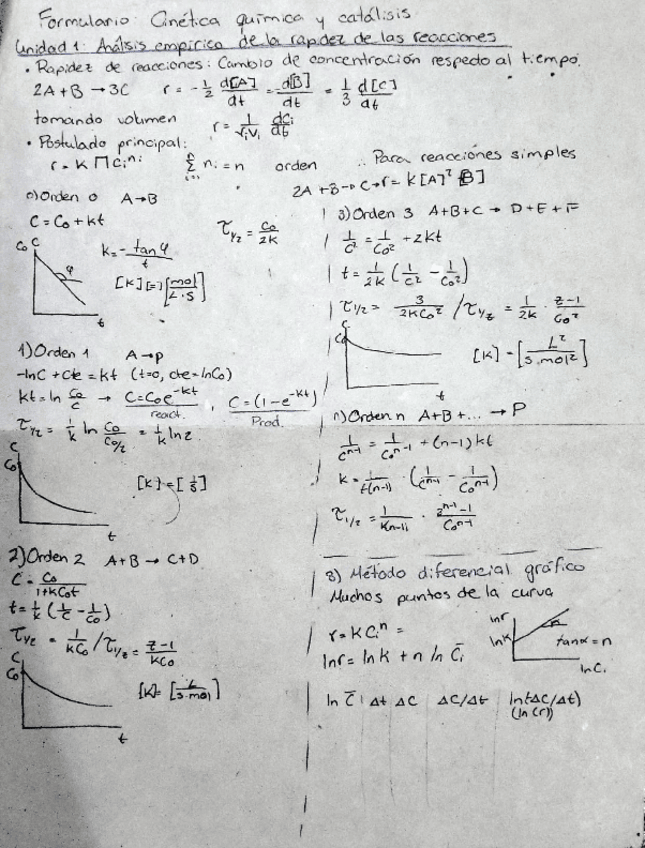 Formulario: Cinética química y catálisis.
Unidad 1: Análisis empírico de la rapidez de las reacciones
• Rapidez de reacciones: Cambio de concentración respecto al tiempo.
2A + B → 3C r = -1/2 d[A]/dt = - d[B]/dt = 1/3 d[C]/dt
tomando volumen r = 1/(νiVi) dCi/dt
• Postulado principal:
r = k ∏ Ci^ni Σ ni = n orden
∴ Para reacciones simples
2A + B → C → r = k[A]² [B]
0) Orden 0 A → B
C = Co + kt τ1/2 = Co/2k
Co C
k = - tan φ/t
φ
[K] [=] [mol/L·S]
t
1) Orden 1 A → P
-lnC + Cte = kt (t=0, cte = lnCo)
kt = ln Co/C → C = Coe^-kt , C = (1 - e^-kt)
react. Prod.
τ1/2 = 1/k ln Co/(Co/2) = 1/k ln2
C
Co
[K] = [1/S]
t
2) Orden 2 A + B → C + D
C = Co/(1+kCot)
t = 1/k (1/C - 1/Co)
τ1/2 = 1/kCo / τ1/z = z-1/kCo
C
Co
[K] = [L/s·mol]
t
3) Orden 3 A + B + C → D + E + F
1/C² = 1/Co² + 2kt
t = 1/2k (1/C² - 1/Co²)
τ1/2 = 3/2kCo² / τ1/z = 1/2k · z-1/Co²
C
Co
[K] = [L²/s·mol²]
t
n) Orden n A + B + ... → P
1/C^n-1 = 1/Co^n-1 + (n-1) kt
k = 1/t(n-1) · (1/C^n-1 - 1/Co^n-1)
τ1/2 = 1/k(n-1) · 2^n-1 -1/Co^n-1
3) Método diferencial gráfico
Muchos puntos de la curva
r = k Ci^n =
lnr = ln k + n ln C̄i
lnr
lnk
tanα = n
lnCi
ln C̄ | Δt ΔC ΔC/Δt ln(ΔC/Δt)
(ln(r))